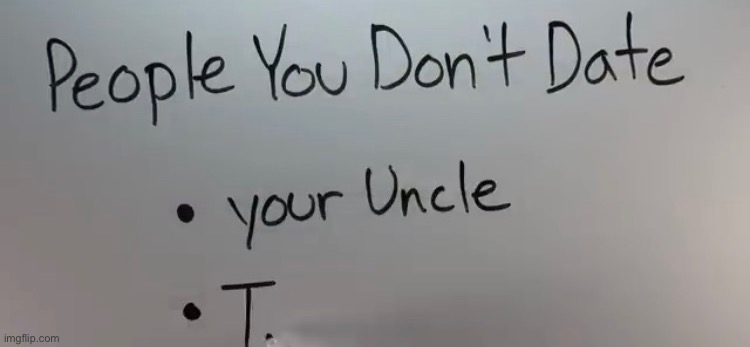 People You Don't Date
• your Uncle
• T.
imgflip.com